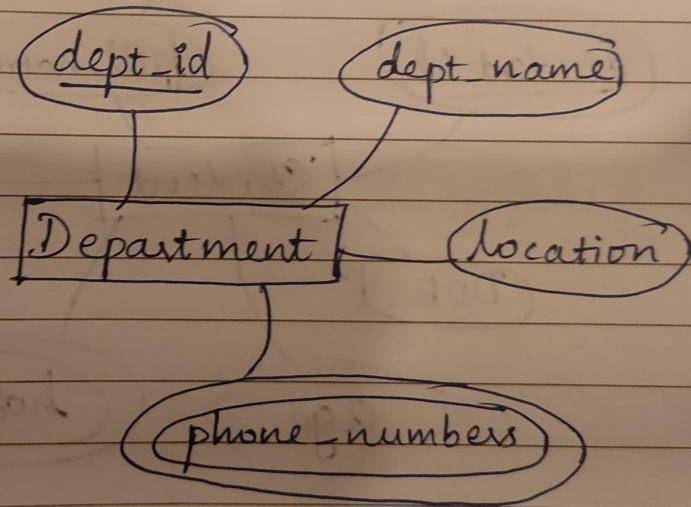 dept_id
dept_name
Department
location
phone_numbers